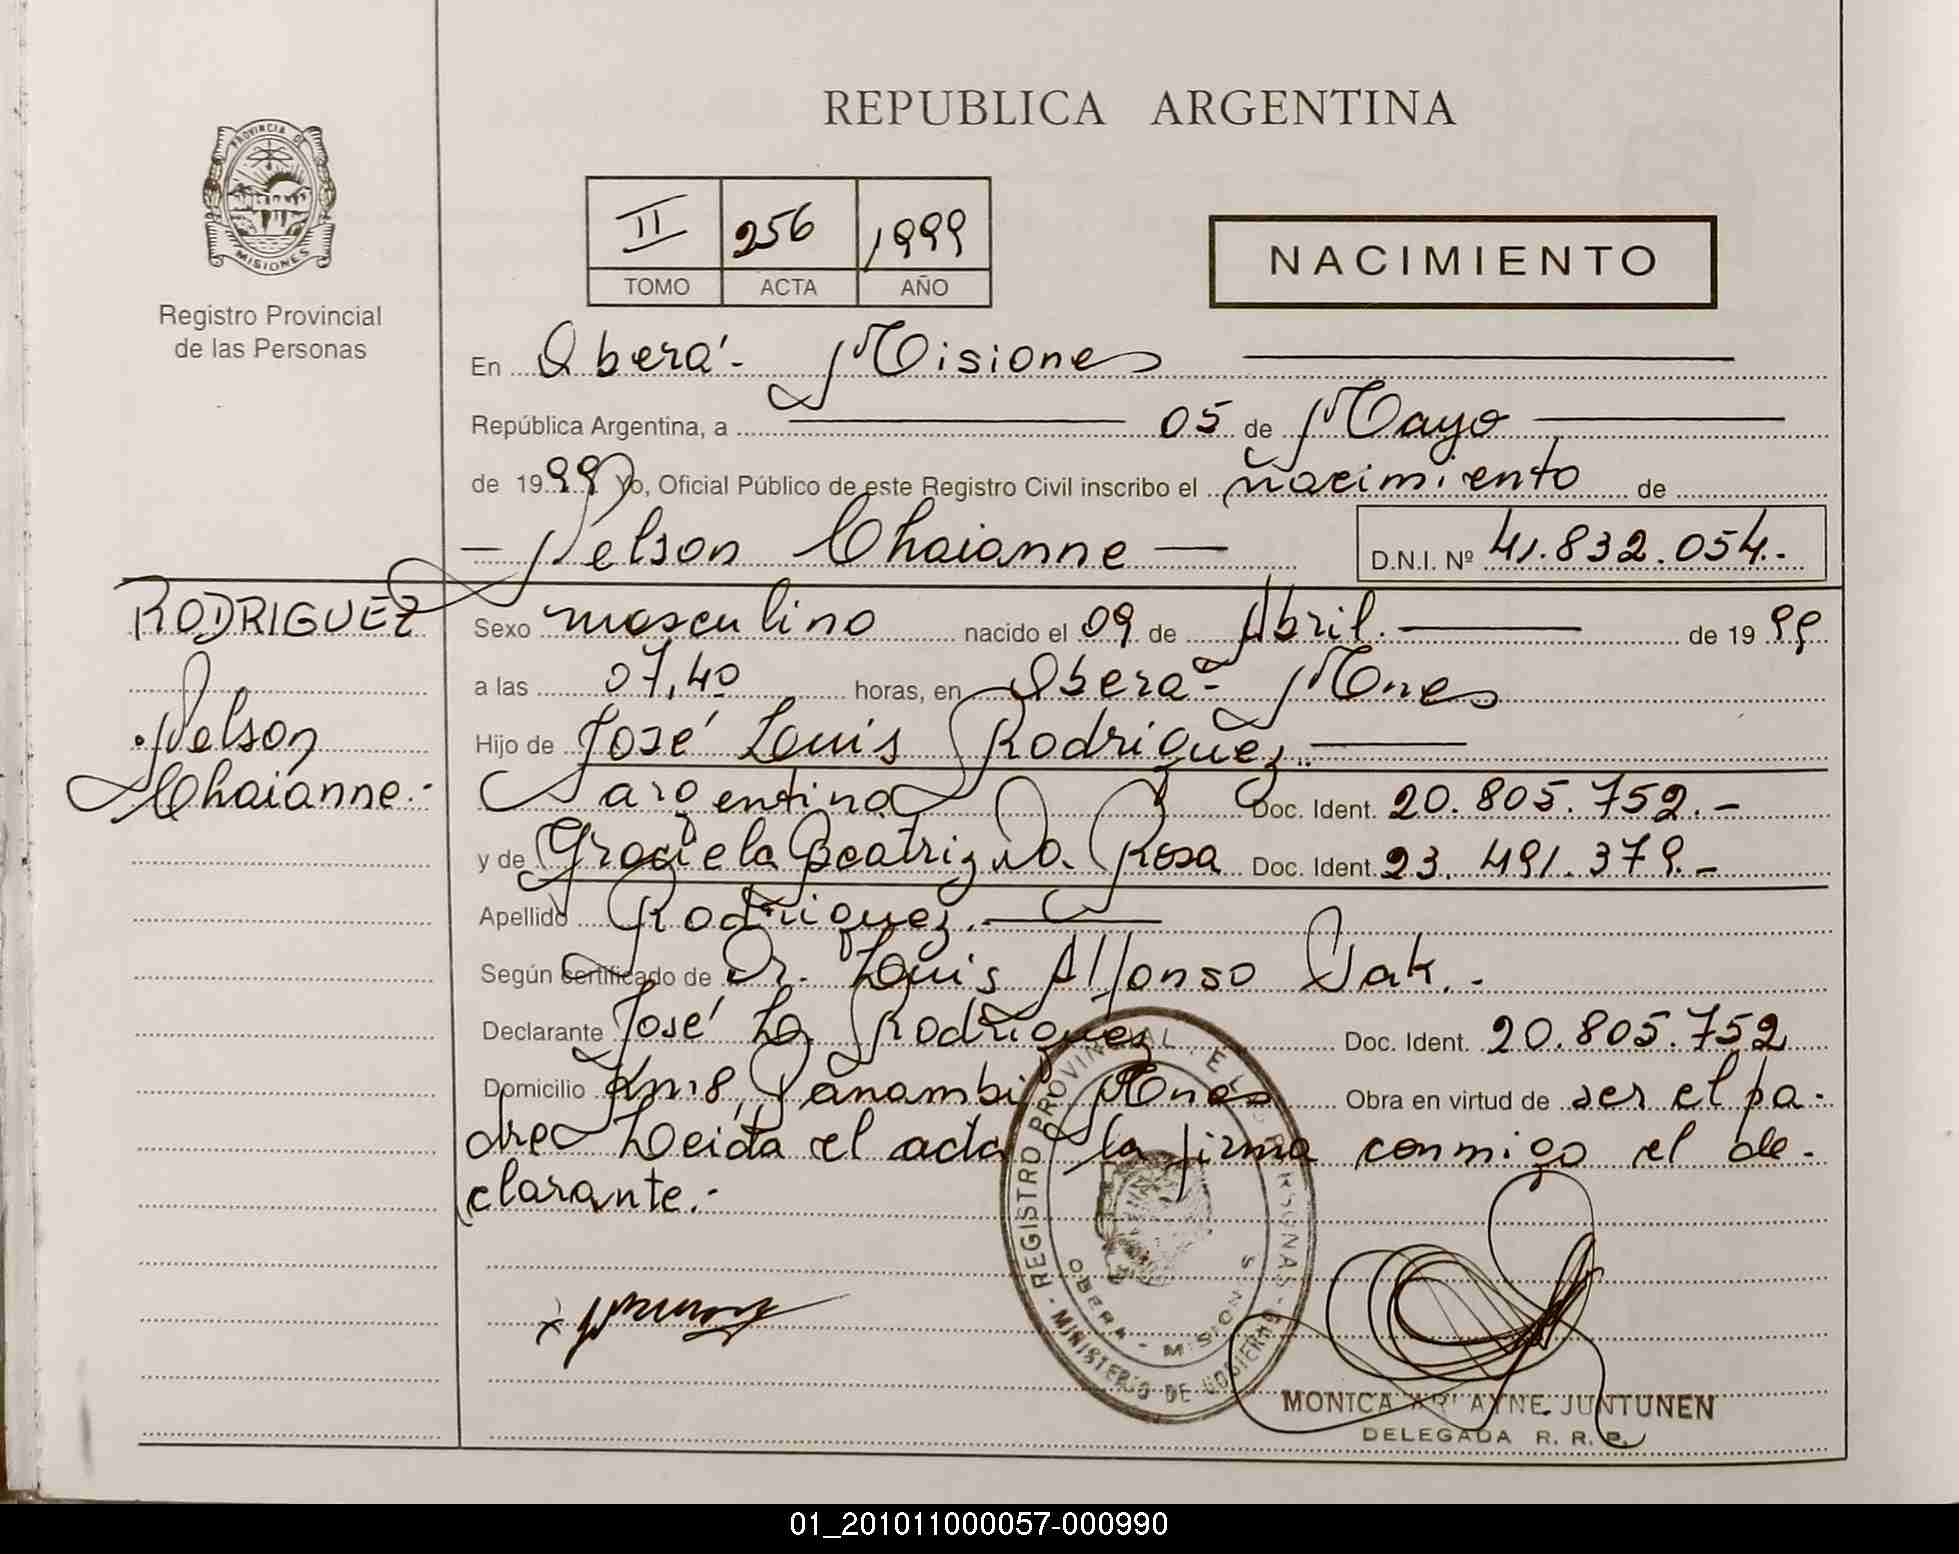 REPUBLICA ARGENTINA
PROVINCIA DE
MISIONES
Registro Provincial
de las Personas
II 256 1999
TOMO ACTA AÑO
NACIMIENTO
En Oberá - Misiones
República Argentina, a 05 de Mayo
de 1999 Yo, Oficial Público de este Registro Civil inscribo el nacimiento de
- Nelson Chaianne - D.N.I. Nº 41.832.054.-
RODRIGUEZ
Nelson
Chaianne.-
Sexo masculino nacido el 09 de Abril. de 1999
a las 07,40 horas, en Oberá - Mnes
Hijo de José Luis Rodriguez.
argentino Doc. Ident. 20.805.752.-
y de Graciela Beatriz Da Rosa Doc. Ident. 23.491.379.-
Apellido Rodriguez.-
Según certificado de Dr. Luis Alfonso Pak.-
Declarante José L. Rodriguez Doc. Ident. 20.805.752
Domicilio Km. 8, Panambí Mnes Obra en virtud de ser el pa-
dre Leida el acta la firma conmigo el de-
clarante.-
REGISTRO PROVINCIAL DE L PERSONAS - MINISTERIO DE GOBIERNO
OBERA - MISIONES
MONICA ARLAYNE JUNTUNEN
DELEGADA R. R. P.
01_201011000057-000990